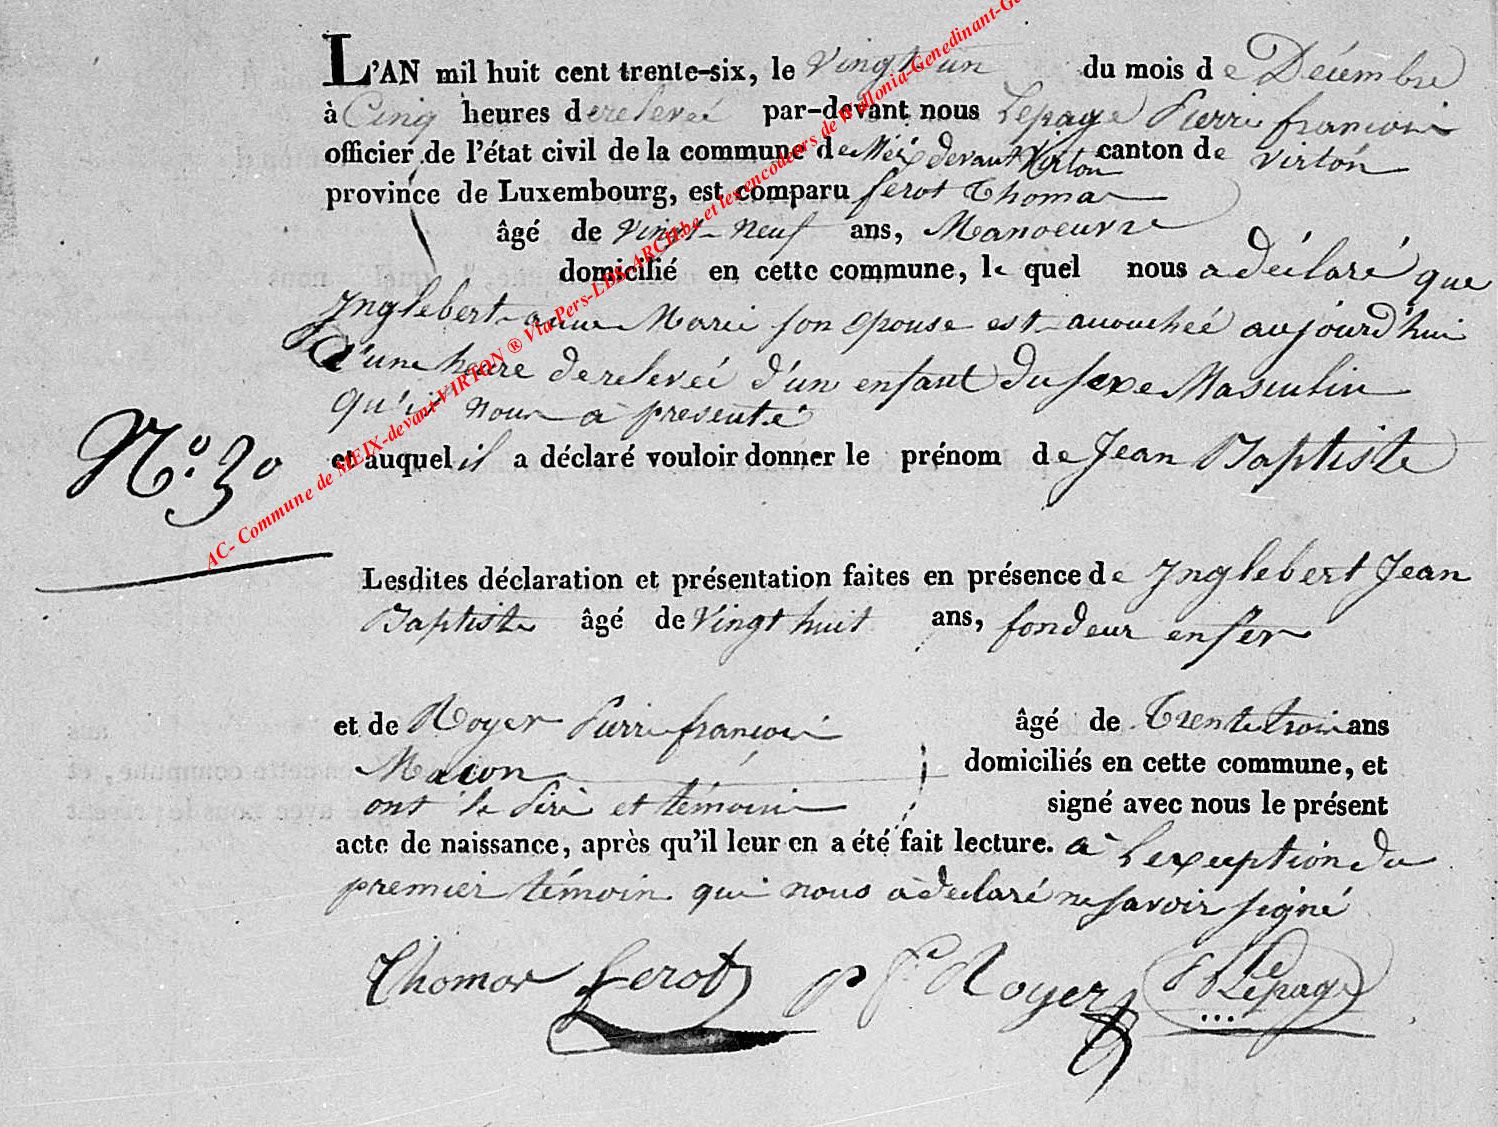 L'AN mil huit cent trente-six, le Vingt un du mois de Décembre
à Cinq heures de relevée par-devant nous Lepage Pierre françois
officier de l'état civil de la commune de Meix devant Virton canton de Virton
province de Luxembourg, est comparu ferot Thomas
âgé de Vingt Neuf ans, Manoeuvre
domicilié en cette commune, le quel nous a déclaré que
Inglebert anne Marie son épouse est accouchée aujourd'hui
d'une heure de relevée d'un enfant du sexe Masculin
qu'il nous a presenté
et auquel il a déclaré vouloir donner le prénom de Jean Baptiste
N.º 30
Lesdites déclaration et présentation faites en présence de Inglebert Jean
Baptiste âgé de Vingt huit ans, fondeur en fer
et de Royer Pierre françois âgé de Trente trois ans
Macon domiciliés en cette commune, et
ont le Père et témoins signé avec nous le présent
acte de naissance, après qu'il leur en a été fait lecture. à L'exception du
premier témoin qui nous a déclaré ne savoir signé
Thomas ferot p f Royer Lepage
AC- Commune de MEIX-devant-VIRTON ® Via Pers-LDS-ARCH.be et les encodeurs de Wallonia-Genedinant-Ge